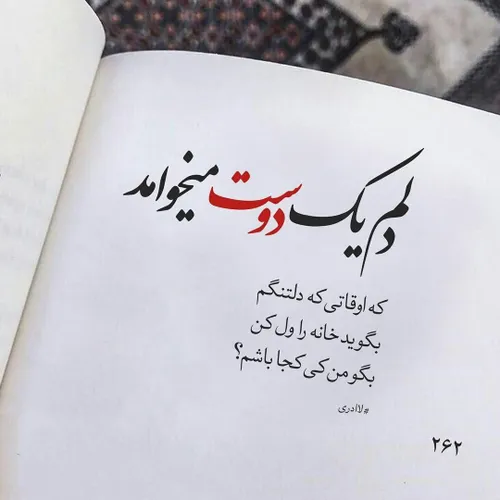 دلم یک دوست میخواهد
که اوقاتی که دلتنگم
بگوید خانه را ول کن
بگو من کی کجا باشم؟
#لاادری
۲۶۲